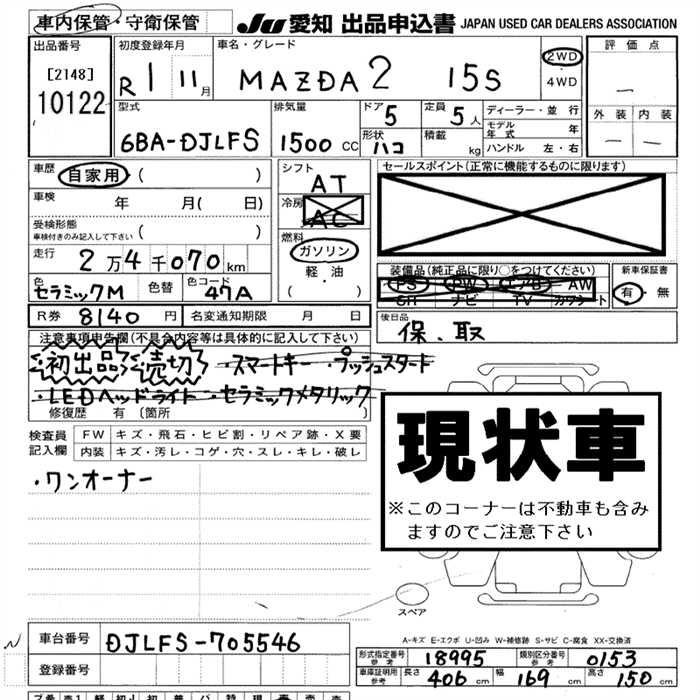 車内保管・守衛保管 JU 愛知 出品申込書 JAPAN USED CAR DEALERS ASSOCIATION
出品番号 初度登録年月 車名・グレード 評価点
[2148]
10122
R 1 11月 MAZDA2 15S 2WD
4WD
—
型式 排気量 ドア 定員 ディーラー・並行 外装 内装
6BA-DJLFS 1500 CC 5 5人 モデル年式 年
形状 ハコ 積載 kg ハンドル 左・右 — —
車歴 自家用 ( ) シフト AT セールスポイント(正常に機能するものに限ります)
車検 年 月( 日) 冷房 AC
受検形態
車検付きのみ記入して下さい ( )
燃料 ガソリン
軽・油
( )
走行 2万4千070km 装備品(純正品に限り○をつけてください) 新車保証書
PS PW エアB AW
SR ナビ TV カワシート
有・無
色 セラミックM 色替 色コード 47A
R券 8140 円 名変通知期限 月 日 後日品
保、取
注意事項申告欄(不具合内容等は具体的に記入して下さい)
初出品 売切 ・スマートキー ・プッシュスタート
・LEDヘッドライト ・セラミックメタリック
修復歴 有 〔箇所 〕
検査員記入欄 FW キズ・飛石・ヒビ割・リペア跡・X要
内装 キズ・汚レ・コゲ・穴・スレ・キレ・破レ
・ワンオーナー
現状車
※このコーナーは不動車も含み
ますのでご注意下さい
スペア
A-キズ E-エクボ U-凹み W-補修跡 S-サビ C-腐食 XX-交換済
車台番号 DJLFS-705546
登録番号
形式指定番号 参考 18995 類別区分番号 参考 0153
車庫証明用 参考 長さ 406 cm 幅 169 cm 高さ 150 cm